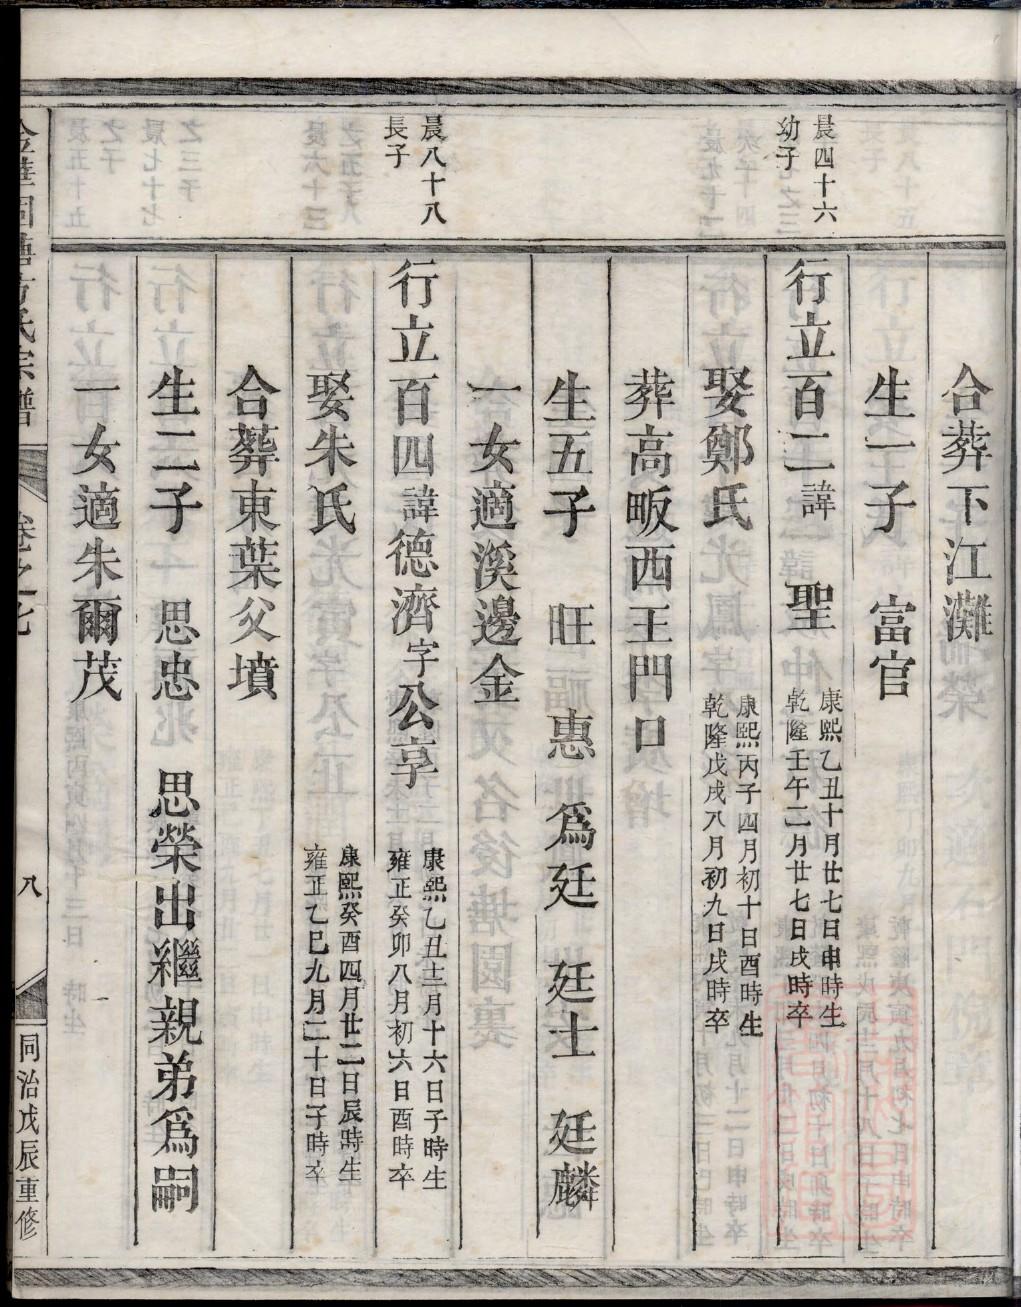 合葬下江灘
生一子　富官
晨四十六
幼子
行立百二諱　聖　康熙乙丑十月廿七日申時生
乾隆壬午二月廿七日戌時卒
娶鄭氏　康熙丙子四月初十日酉時生
乾隆戊戌八月初九日戌時卒
葬高畈西王門口
生五子　旺　惠　為廷　廷士　廷麟
一女適溪邊金
晨八十八
長子
行立百四諱德濟字公享　康熙乙丑十二月十六日子時生
雍正癸卯八月初六日酉時卒
娶朱氏　康熙癸酉四月廿二日辰時生
雍正乙巳九月二十日子時卒
合葬東葉父墳
生二子　思忠　思榮出繼親弟為嗣
一女適朱爾茂
氏宗譜
卷之七
八
同治戊辰重修